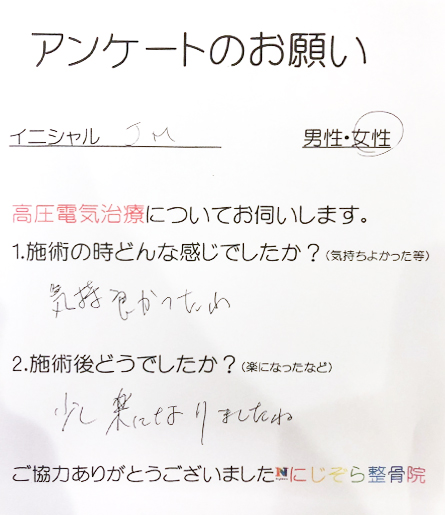 アンケートのお願い
イニシャル JM 男性・女性
高圧電気治療についてお伺いします。
1.施術の時どんな感じでしたか？(気持ちよかった等)
気持良かったわ
2.施術後どうでしたか？(楽になったなど)
少し楽になりましたね
ご協力ありがとうございました N にじぞら整骨院